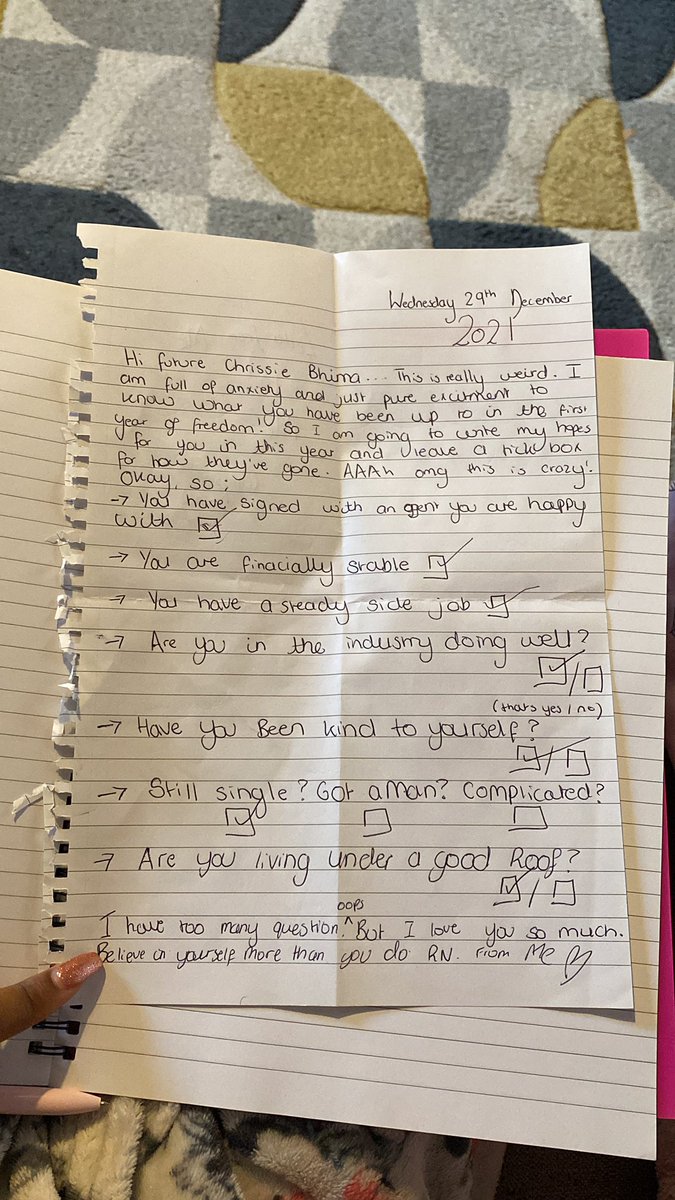 Wednesday 29th December
2021
Hi future Chrissie Bhima... This is really weird. I
am full of anxiety and just pure excitment to
know what you have been up to in the first
year of freedom! So I am going to write my hopes
for you in this year and leave a tick box
for how they've gone. AAAh omg this is crazy!
Okay, so;
→ You have signed with an agent you are happy
with ☑
→ You are finacially stable ☑
→ You have a steady side job ☑
→ Are you in the industry doing well?
☑/☐
(thats yes / no)
→ Have you Been kind to yourself?
☑/☐
→ Still single? Got a Man? Complicated?
☑ ☐ ☐
→ Are you living under a good Roof?
☑/☐
oops
I have too many question.^ But I love you so much.
Believe in yourself more than you do RN. From Me ♡